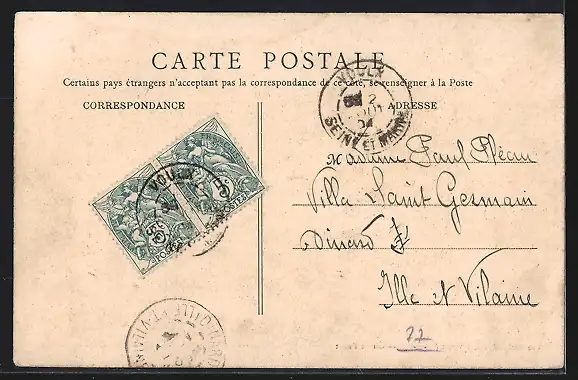 CARTE POSTALE
Certains pays étrangers n'acceptant pas la correspondance de ce côté, se renseigner à la Poste
CORRESPONDANCE
ADRESSE
VOULX
2
04
SEINE ET MARNE
VOULX
5
POSTES
5
Madame Paul
Villa Saint Germain
Dinard
Ille et Vilaine
77